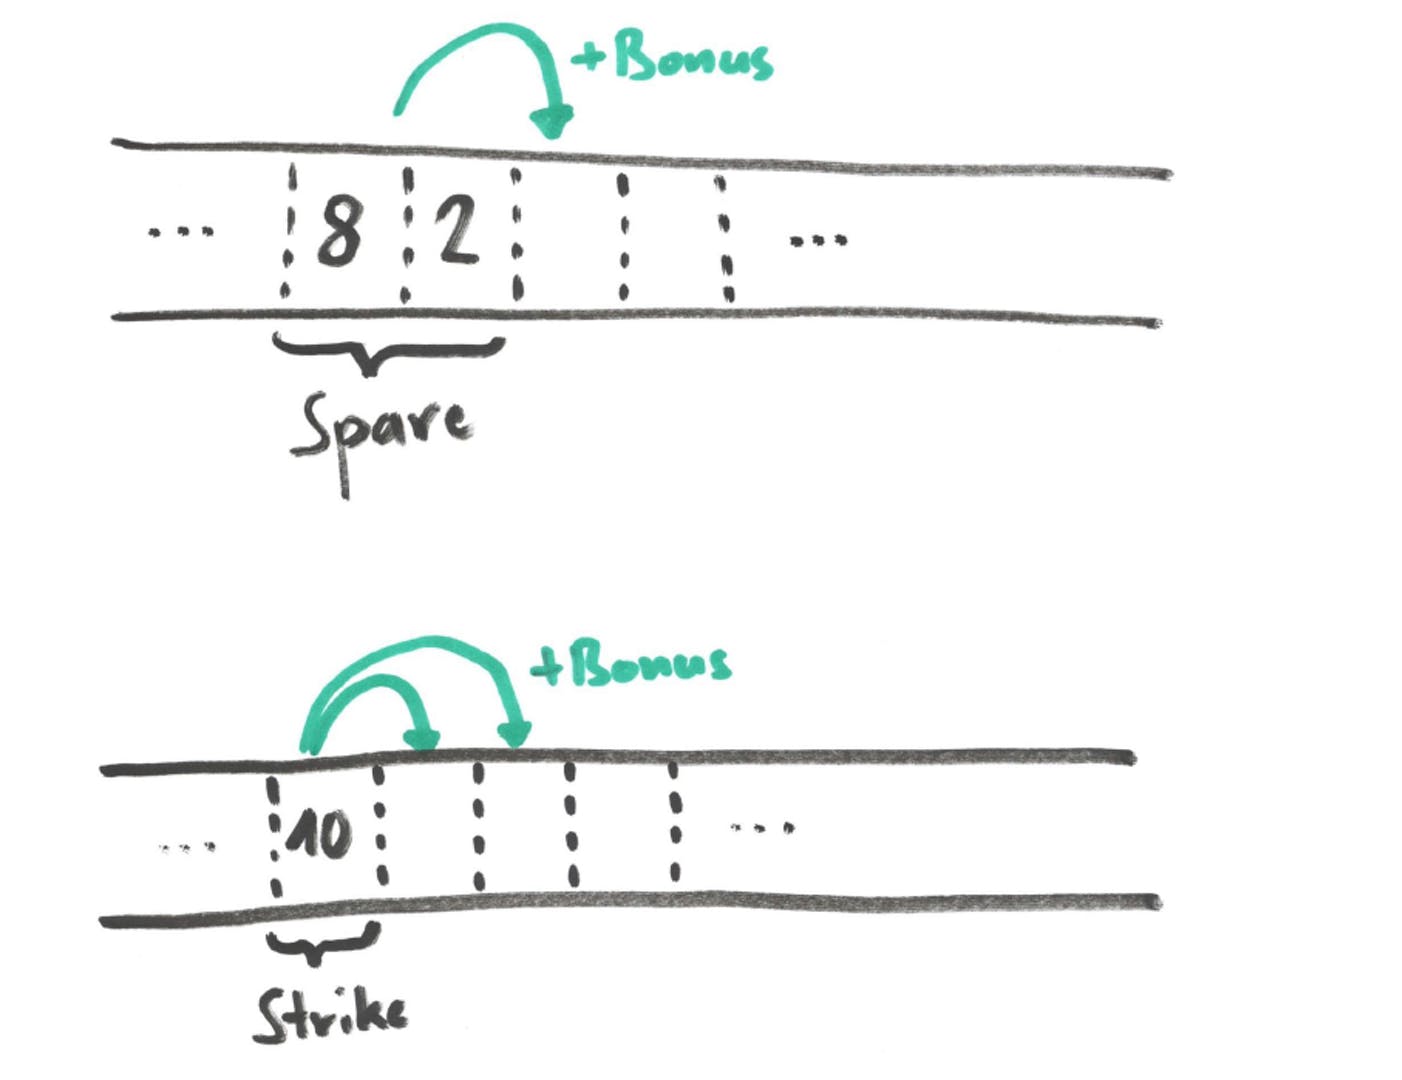 +Bonus
... 8 2 ...
Spare
+Bonus
... 10 ...
Strike